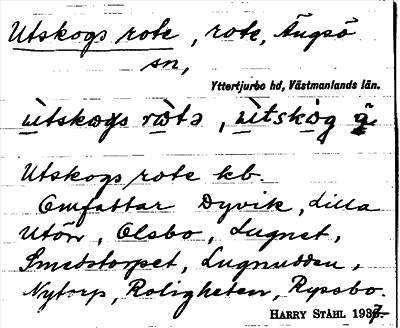 Utskogs rote, rote, Ängsö
sn,
Yttertjurbo hd, Västmanlands län.
ùtskogs ròtə, ùtskòg
Utskogs rote kb.
Omfattar Dyvik, Lilla
Utön, Olsbo, Lugnet,
Smedstorpet, Lugnudden,
Nytorp, Roligheten, Ryssbo.
HARRY STÅHL 1937.